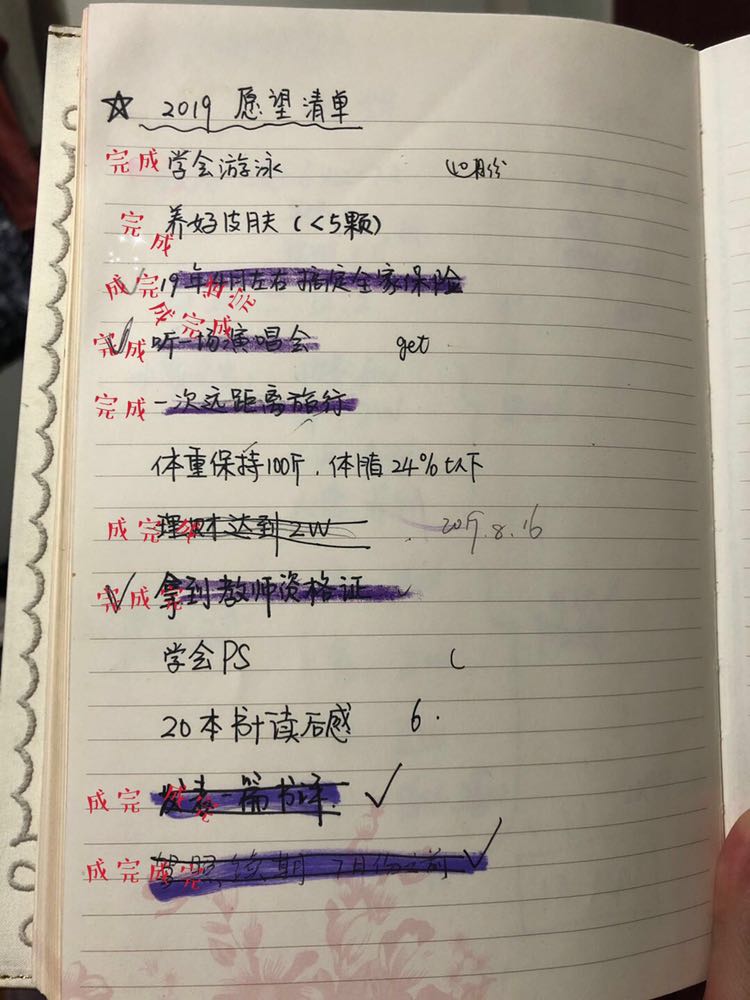 ☆ 2019 愿望清单
完成 学会游泳 10月份
完成 养好皮肤（<5颗）
成完 19年 月左右 搞定全家保险
成完 完成 听一场演唱会 get
完成 一次远距离旅行
体重保持100斤，体脂24%以下
成完 理财达到2W 2019.8.16
完成 拿到教师资格证
学会PS
20本书+读后感 6.
成完 发表一篇书评. ✓
成完 驾照 换期 7月份之前 ✓